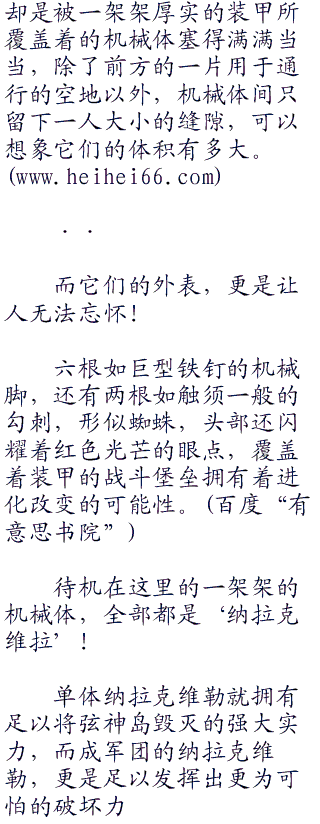 却是被一架架厚实的装甲所
覆盖着的机械体塞得满满当
当，除了前方的一片用于通
行的空地以外，机械体间只
留下一人大小的缝隙，可以
想象它们的体积有多大。
(www.heihei66.com)
．．
而它们的外表，更是让
人无法忘怀！
六根如巨型铁钉的机械
脚，还有两根如触须一般的
勾刺，形似蜘蛛，头部还闪
耀着红色光芒的眼点，覆盖
着装甲的战斗堡垒拥有着进
化改变的可能性。(百度“有
意思书院”)
待机在这里的一架架的
机械体，全部都是‘纳拉克
维拉’！
单体纳拉克维勒就拥有
足以将弦神岛毁灭的强大实
力，而成军团的纳拉克维
勒，更是足以发挥出更为可
怕的破坏力